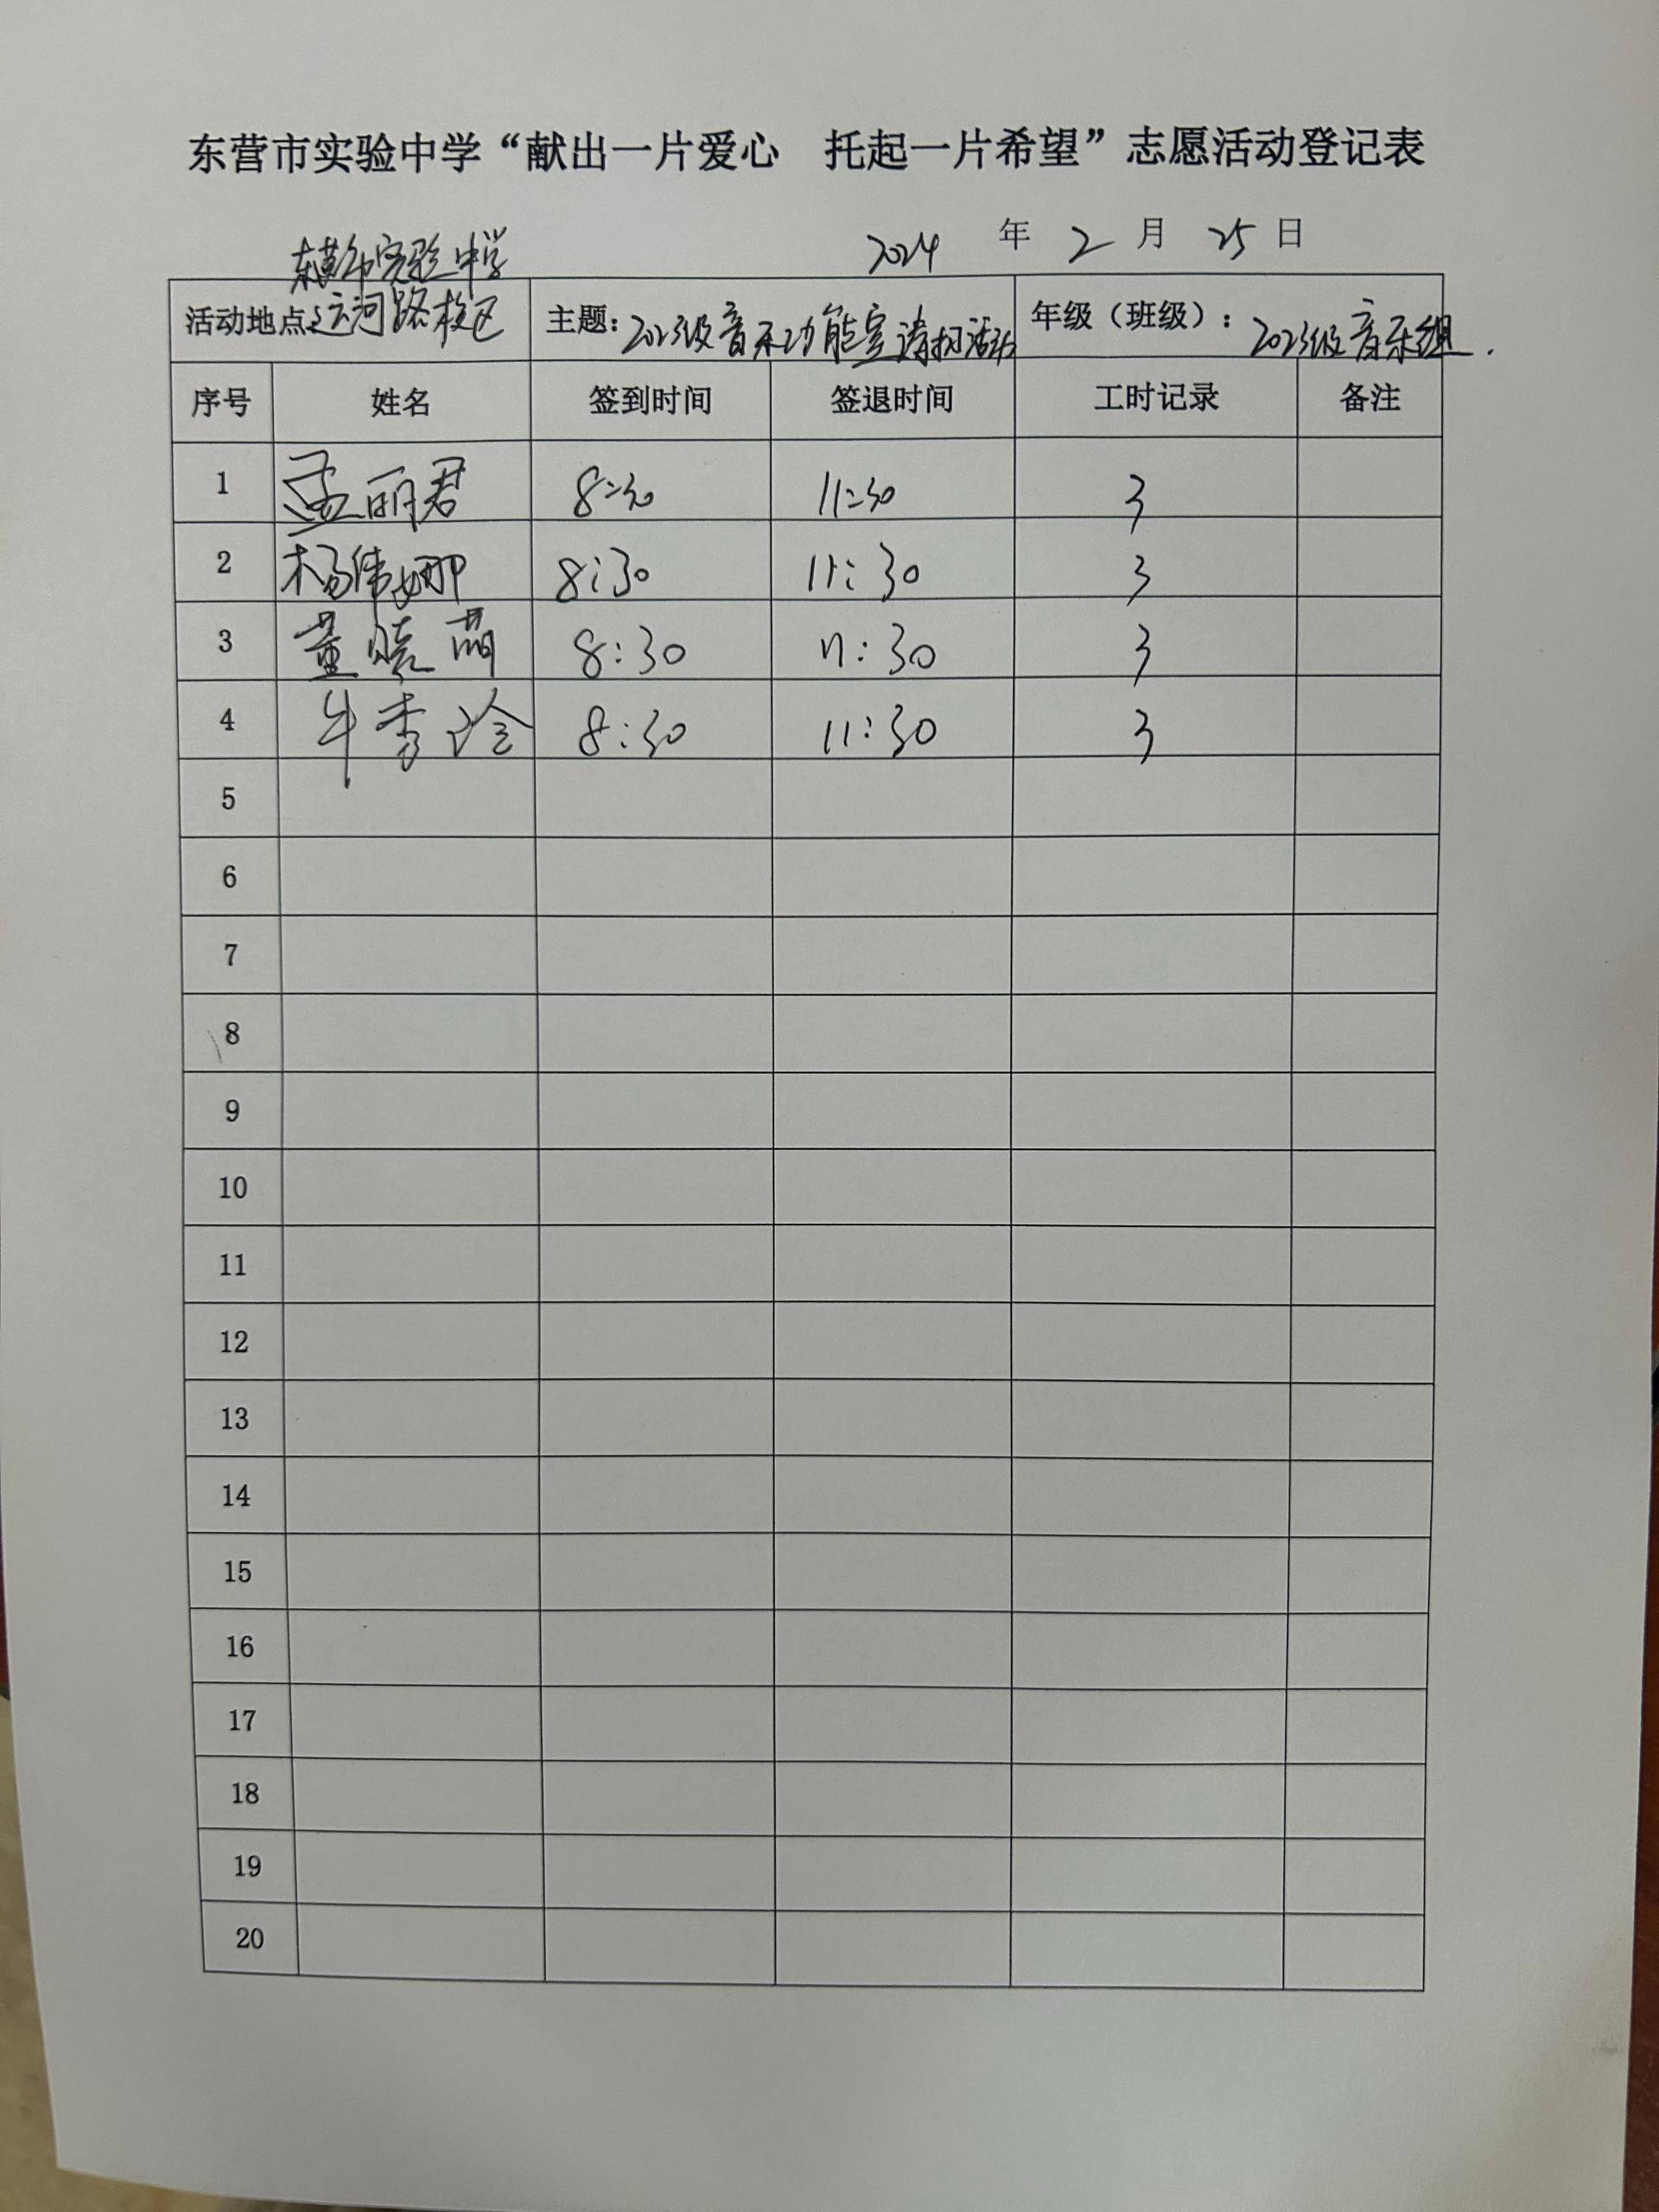 东营市实验中学“献出一片爱心 托起一片希望”志愿活动登记表
2024 年 2 月 25 日
东营市实验中学
活动地点：运河路校区 主题：2023级音乐功能室清扫活动 年级（班级）：2023级音乐组.
序号 姓名 签到时间 签退时间 工时记录 备注
1 孟丽君 8:30 11:30 3
2 杨伟娜 8:30 11:30 3
3 董晓萌 8:30 11:30 3
4 牛秀玲 8:30 11:30 3
5
6
7
8
9
10
11
12
13
14
15
16
17
18
19
20